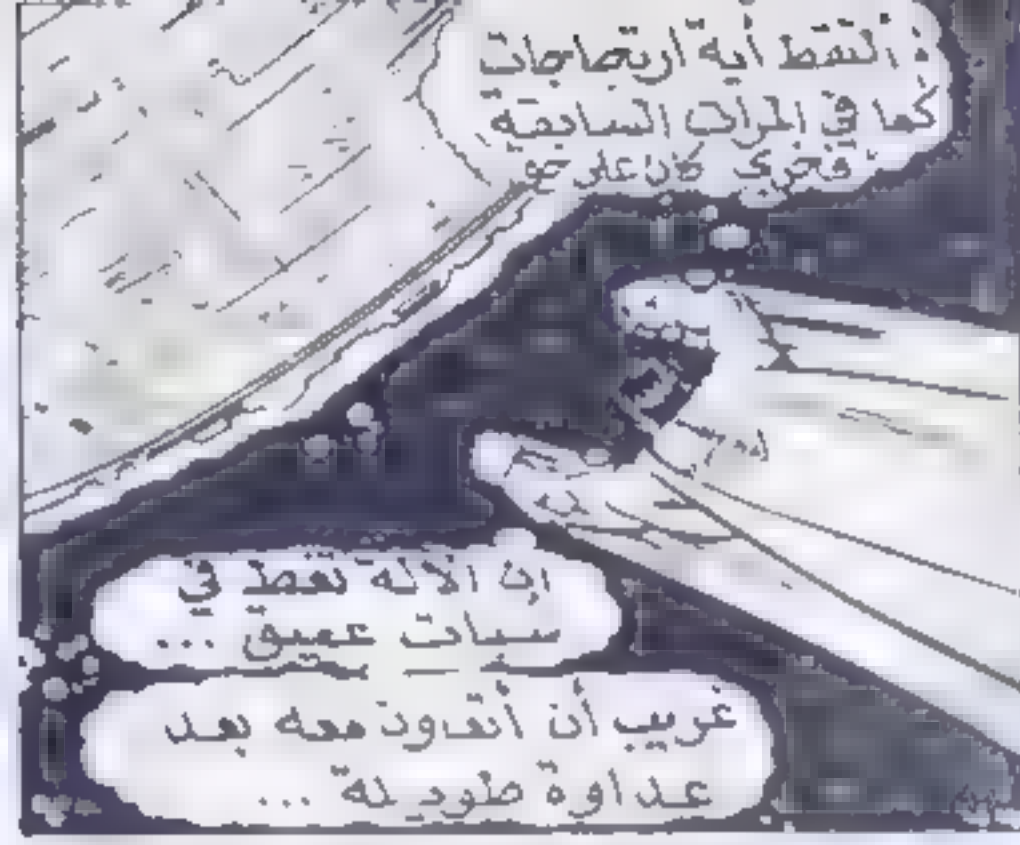 التقط أية ارتجاجات
كما في المرات السابقة
فخري كان على حق
إن الآلة تغط في
سبات عميق ...
غريب أن أتعاون معه بعد
عداوة طويلة ...